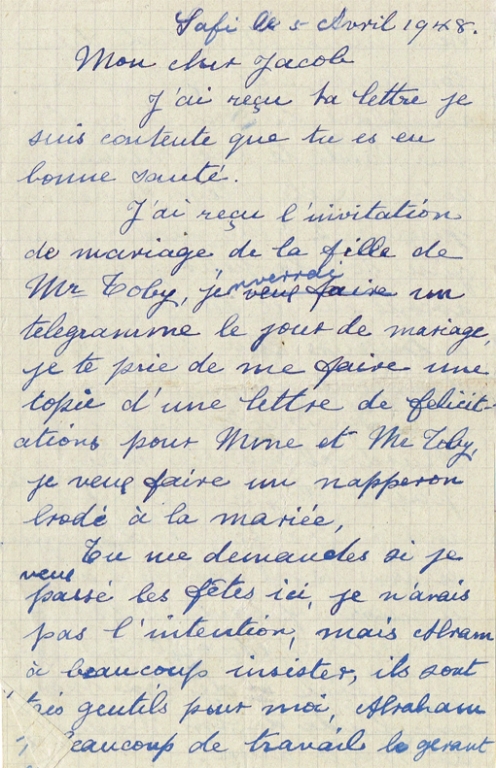 Safi le 5 Avril 1948.
Mon cher Jacob
J'ai reçu ta lettre je
suis contente que tu es en
bonne santé.
J'ai reçu l'invitation
de mariage de la fille de
Mr Toby, j'enverrai
je veux faire un
telegramme le jour de mariage,
je te prie de me faire une
copie d'une lettre de felicit-
ations pour Mme et Mr Toby,
je veux faire un napperon
brodé à la mariée,
Tu me demandes si je
veux
passé les fêtes ici, je n'avais
pas l'intention, mais Abram
à beaucoup insister, ils sont
très gentils pour moi, Abraham
beaucoup de travail le gerant